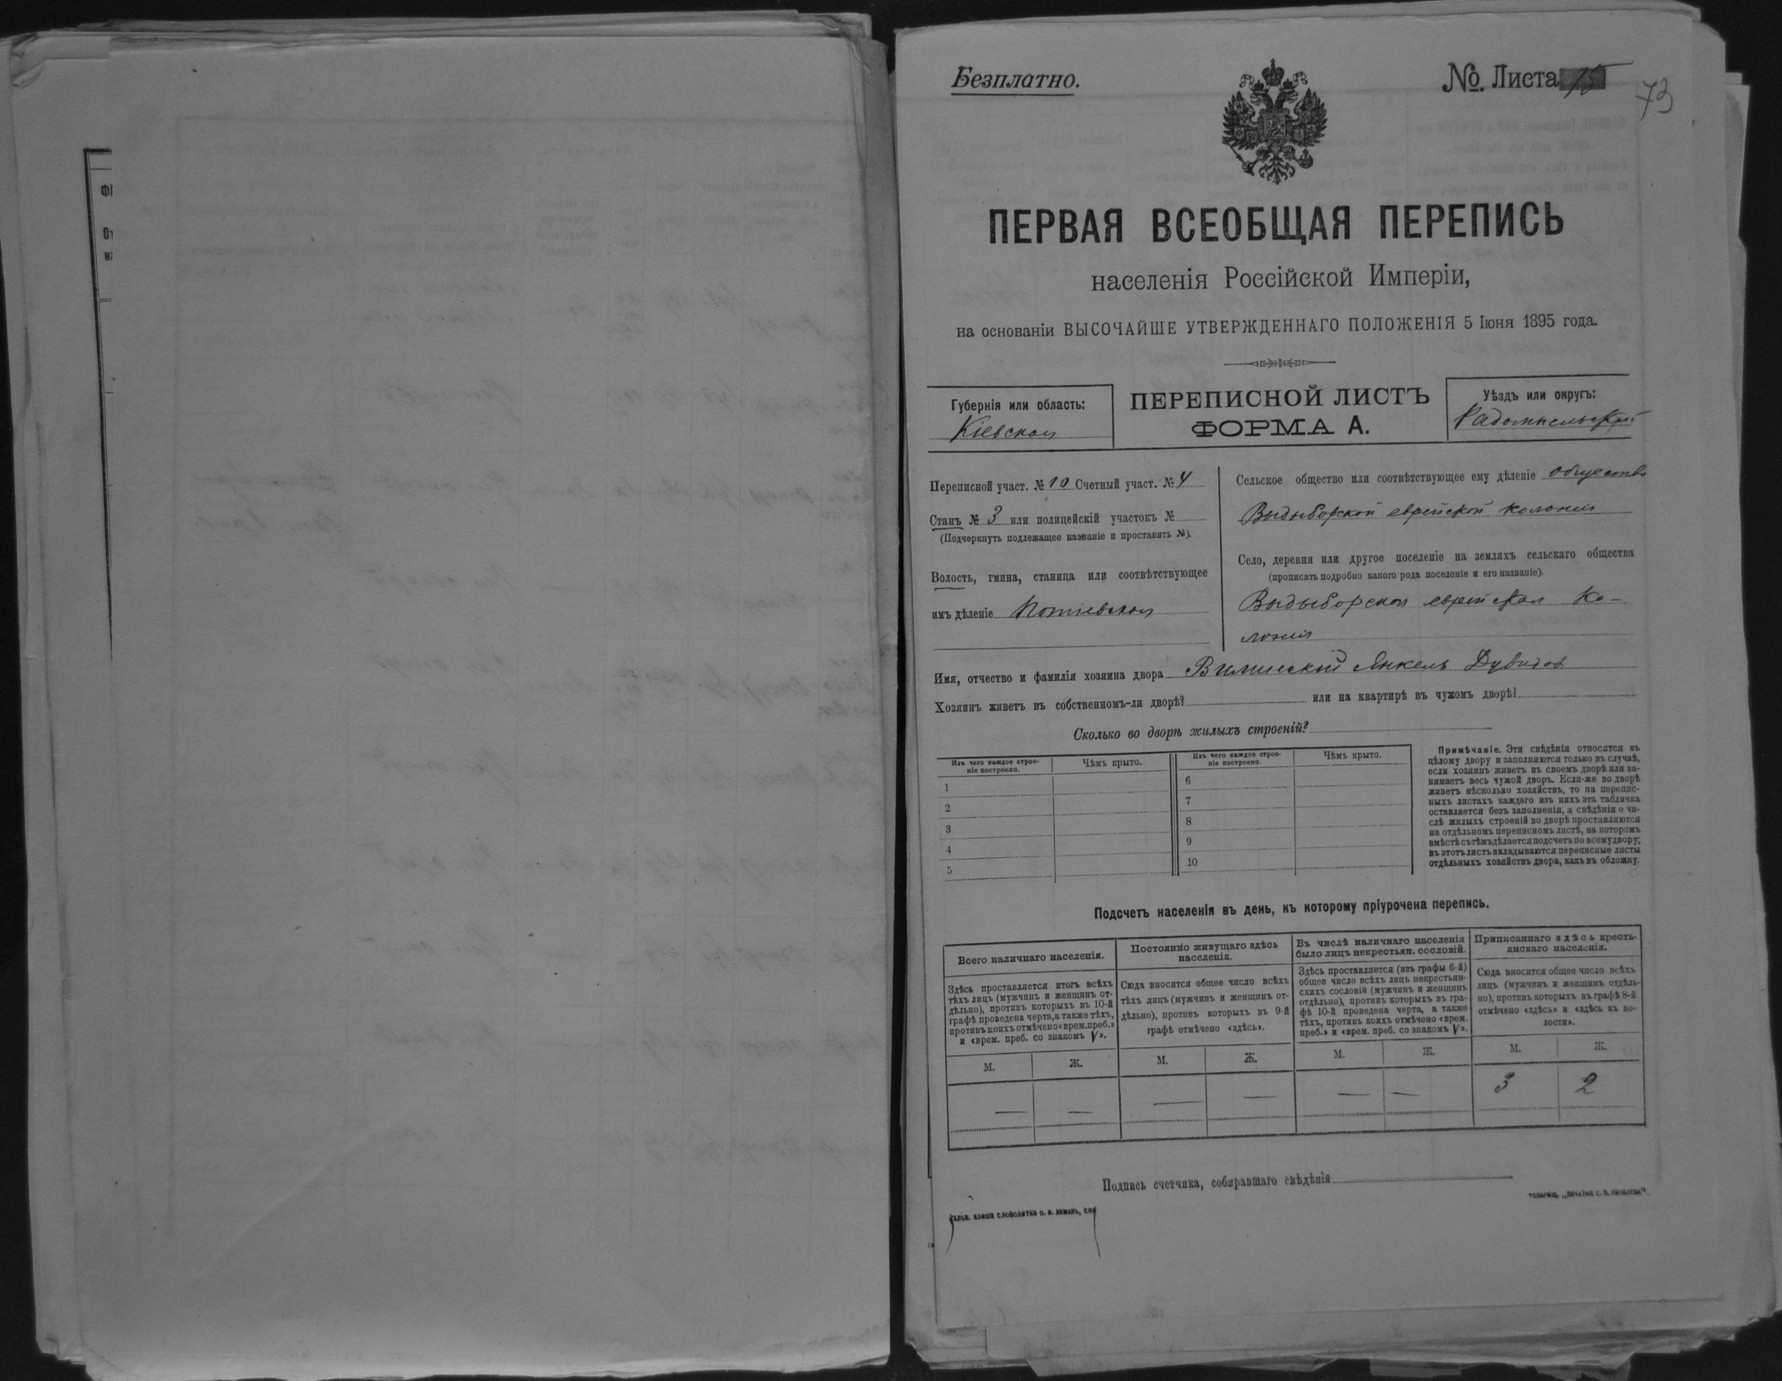 Безплатно.
№. Листа 15
73
ПЕРВАЯ ВСЕОБЩАЯ ПЕРЕПИСЬ
населенія Россійской Имперіи,
на основаніи ВЫСОЧАЙШЕ УТВЕРЖДЕННАГО ПОЛОЖЕНІЯ 5 Іюня 1895 года.
Губернія или область:
Кіевская
ПЕРЕПИСНОЙ ЛИСТЪ
ФОРМА А.
Уѣздъ или округъ:
Радомысльскій
Переписной участ. № 10 Счетный участ. № 4
Станъ № 3 или полицейскій участокъ №
(Подчеркнуть подлежащее названіе и проставить №).
Волость, гмина, станица или соотвѣтствующее
имъ дѣленіе Потіевская
Сельское общество или соотвѣтствующее ему дѣленіе общество
Выдыборской еврейской колоніи
Село, деревня или другое поселеніе на земляхъ сельскаго общества
(прописать подробно какого рода поселеніе и его названіе).
Выдыборская еврейская Ко-
лонія
Имя, отчество и фамилія хозяина двора Янкель Дувидов
Хозяинъ живетъ въ собственномъ-ли дворѣ? или на квартирѣ въ чужомъ дворѣ?
Сколько во дворѣ жилыхъ строеній?
Изъ чего каждое строе-
ніе построено.
Чѣмъ крыто.
Изъ чего каждое строе-
ніе построено.
Чѣмъ крыто.
1
2
3
4
5
6
7
8
9
10
Примѣчаніе. Эти свѣдѣнія относятся къ
цѣлому двору и заполняются только въ случаѣ,
если хозяинъ живетъ въ своемъ дворѣ или за-
нимаетъ весь чужой дворъ. Если-же во дворѣ
живетъ нѣсколько хозяйствъ, то на перепис-
ныхъ листахъ каждаго изъ нихъ эта табличка
оставляется безъ заполненія, а свѣдѣнія о чи-
слѣ жилыхъ строеній во дворѣ проставляются
на отдѣльномъ переписномъ листѣ, на которомъ
вмѣстѣ съ тѣмъ дѣлается подсчетъ по всему двору;
въ этотъ листъ вкладываются переписные листы
отдѣльныхъ хозяйствъ двора, какъ въ обложку.
Подсчетъ населенія въ день, къ которому пріурочена перепись.
Всего наличнаго населенія.
Здѣсь проставляется итогъ всѣхъ
тѣхъ лицъ (мужчинъ и женщинъ от-
дѣльно), противъ которыхъ въ 10-й
графѣ проведена черта, а также тѣхъ,
противъ коихъ отмѣчено «врем. преб.»
и «врем. преб. со знакомъ V».
Постоянно живущаго здѣсь
населенія.
Сюда вносится общее число всѣхъ
тѣхъ лицъ (мужчинъ и женщинъ от-
дѣльно), противъ которыхъ въ 9-й
графѣ отмѣчено «здѣсь».
Въ числѣ наличнаго населенія
было лицъ некрестьян. сословій.
Здѣсь проставляется (изъ графы 6-й)
общее число всѣхъ лицъ некрестьян-
скихъ сословій (мужчинъ и женщинъ
отдѣльно), противъ которыхъ въ гра-
фѣ 10-й проведена черта, а также
тѣхъ, противъ коихъ отмѣчено «врем.
преб.» и «врем. преб. со знакомъ V».
Приписаннаго здѣсь кресть-
янскаго населенія.
Сюда вносится общее число всѣхъ
лицъ (мужчинъ и женщинъ отдѣль-
но), противъ которыхъ въ графѣ 8-й
отмѣчено «здѣсь» и «здѣсь въ во-
лости».
М. Ж. М. Ж. М. Ж. М. Ж.
— — — — — — 3 2
Подпись счетчика, собиравшаго свѣдѣнія